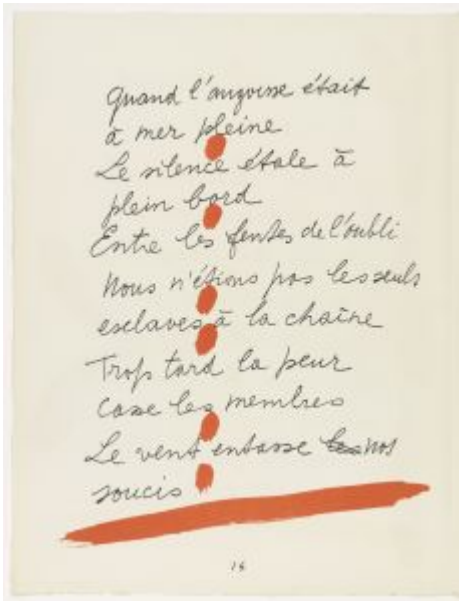 Quand l'angoisse était
à mer pleine
Le silence étale à
plein bord
Entre les fentes de l'oubli
Nous n'étions pas les seuls
esclaves à la chaîne
Trop tard la peur
casse les membres
Le vent entasse les nos
soucis